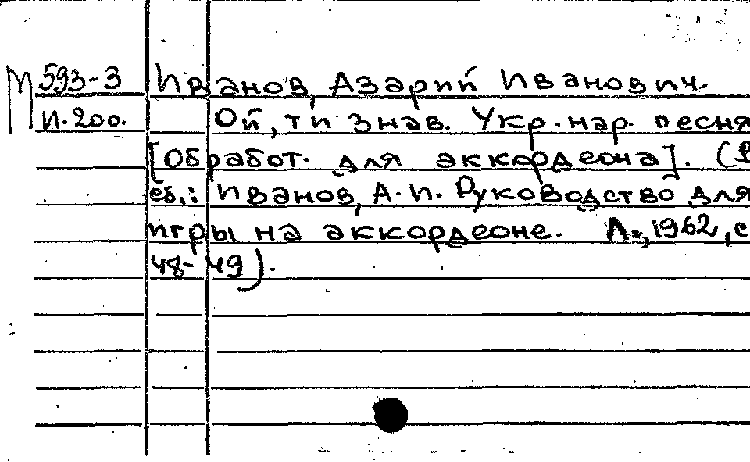 М 593-3 Иванов, Азарий Иванович.
И.200. Ой, ти знав. Укр. нар. песня
[Обработ. для аккордеона]. (В
сб.: Иванов, А.И. Руководство для
игры на аккордеоне. Л., 1962, с
48-49).